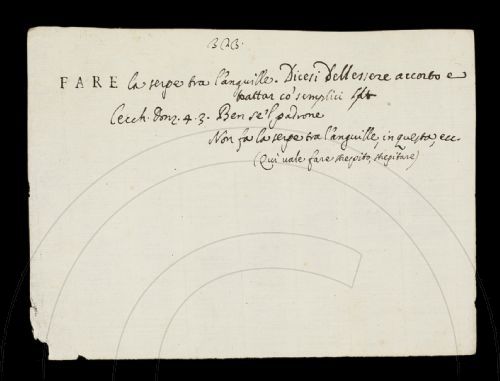 323.
FARE la serpe tra l'anguille. Dicesi Dell'essere accorto e
trattar co' semplici
Cecch. Donz. 4. 3. Ben se 'l padrone
Non fa la serpe tra l'anguille, in questa, ecc.
(Qui vale fare strepito, strepitare)